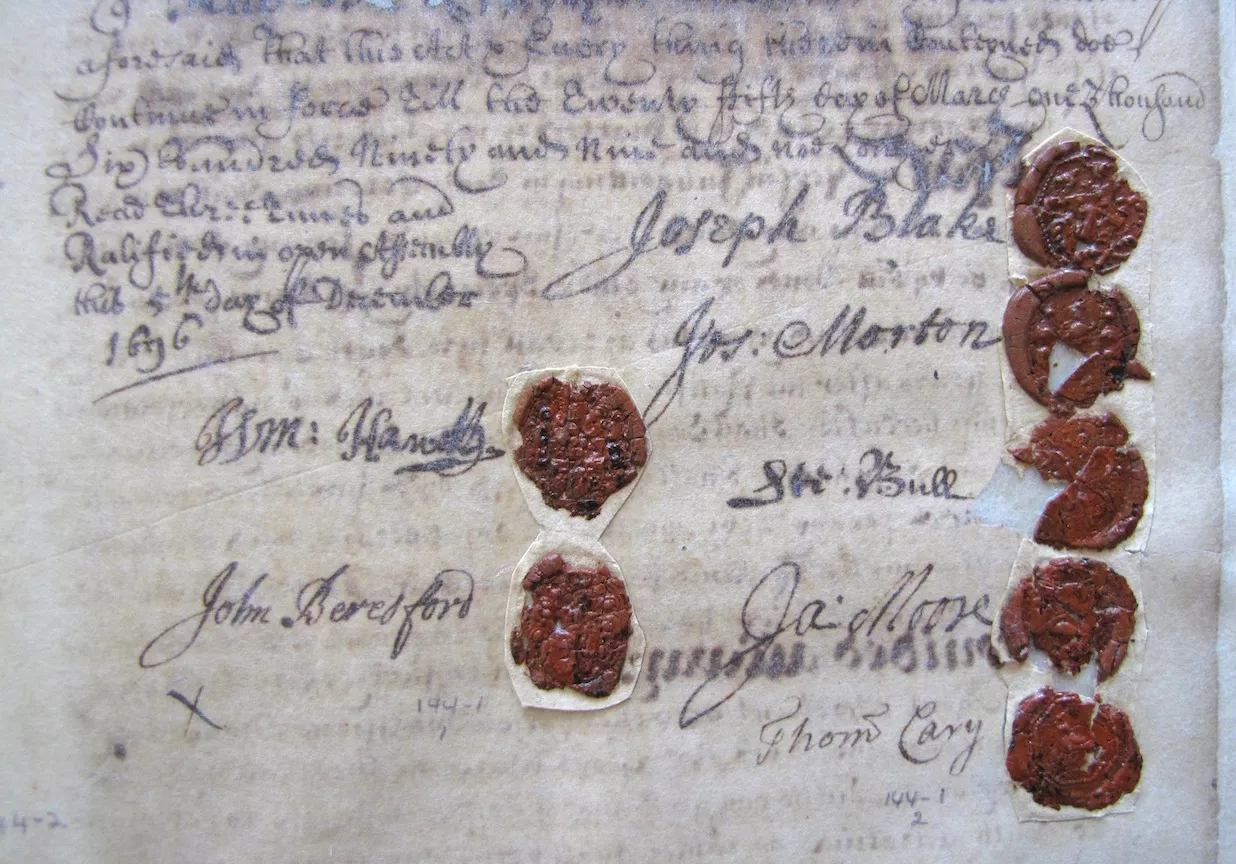 aforesaid That this Act & Every thing therein Conteyned doe
Continue in force till the twenty fifth day of March one Thousand
Six hundred Ninety and Nine and noe Longer
Read three times and
Ratified in open Assembly
this 5th day of December
1696
Joseph Blake
Jos: Morton
Wm: Hawett
Ste: Bull
John Beresford
Ja: Moore
X
144-1
Thom Cary
144-1
2
4-2